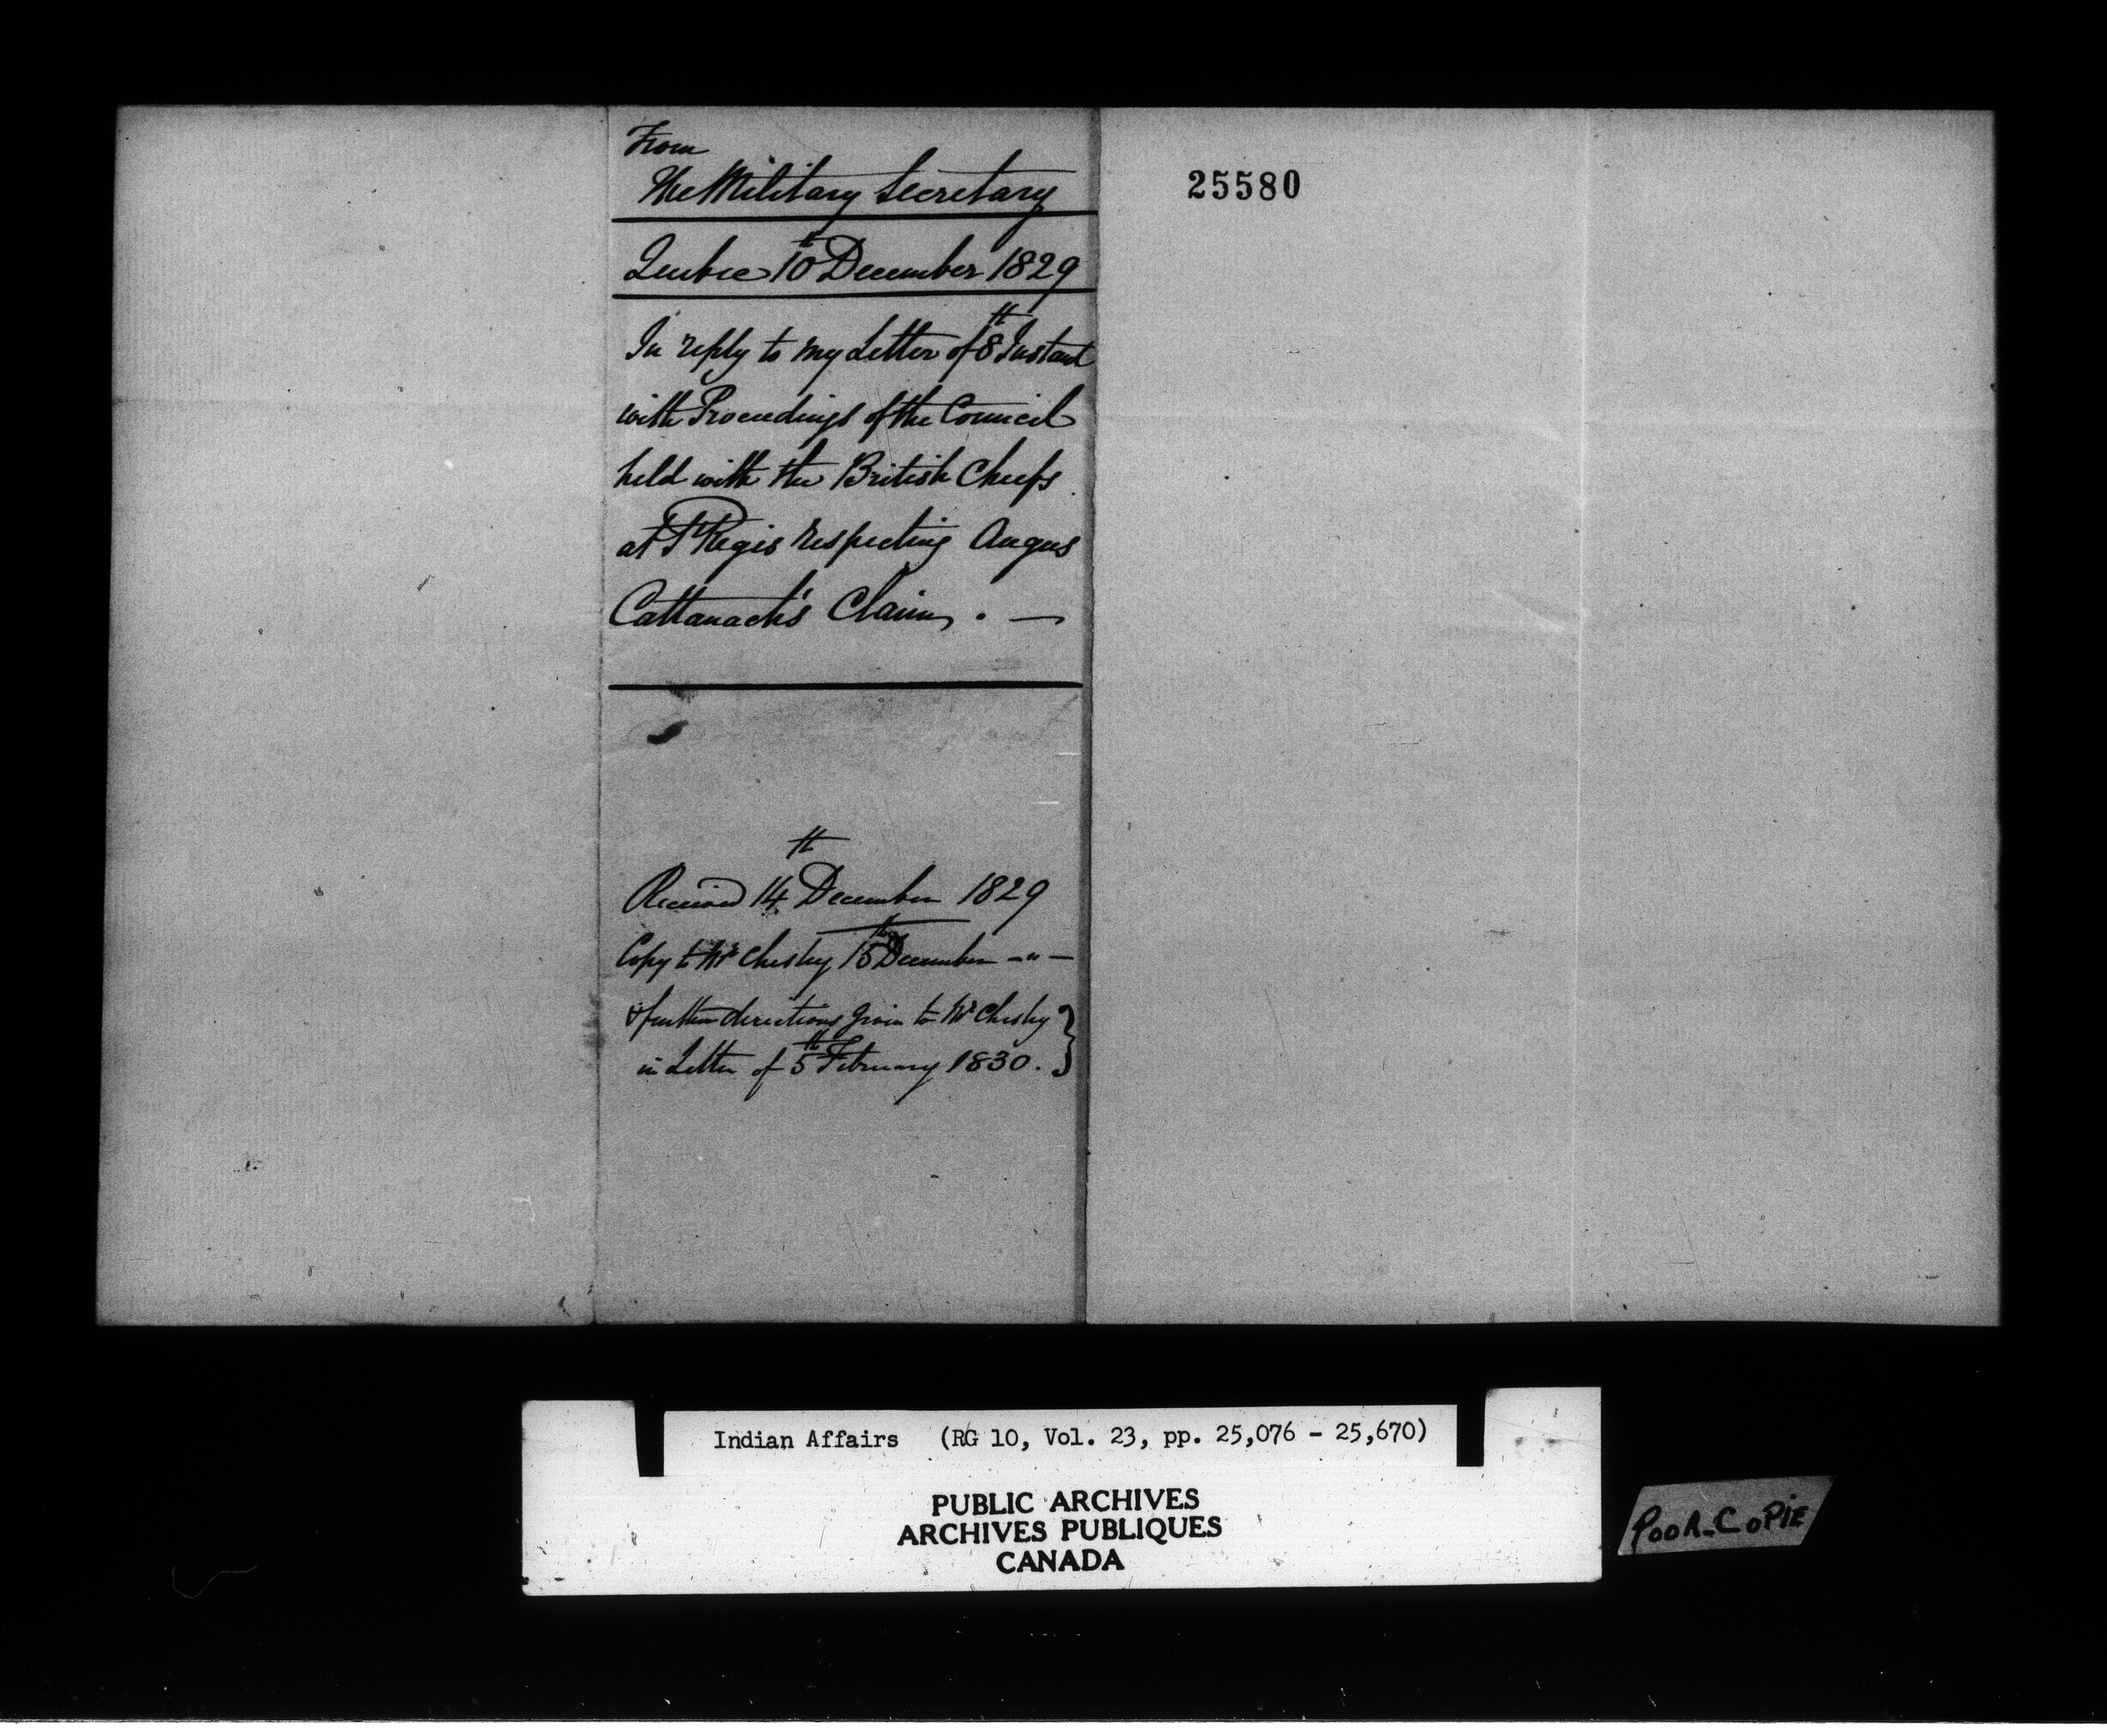 From
The Military Secretary
Quebec 10th December 1829
In reply to my Letter of 8th Instant
with Proceedings of the Council
held with the British Chiefs
at St Regis respecting Angus
Cattanach's Claim. —
Received 14th December 1829
Copy to Mr Chesley 15th December -"-
& further directions given to Mr Chesley
in Letter of 5th February 1830.
25580
Indian Affairs (RG 10, Vol. 23, pp. 25,076 - 25,670)
PUBLIC ARCHIVES
ARCHIVES PUBLIQUES
CANADA
POOR-COPIE